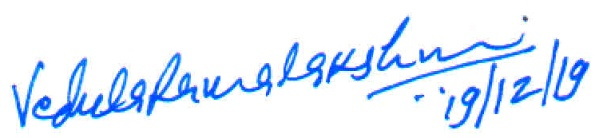 Vedula Ramalakshmi
19/12/19